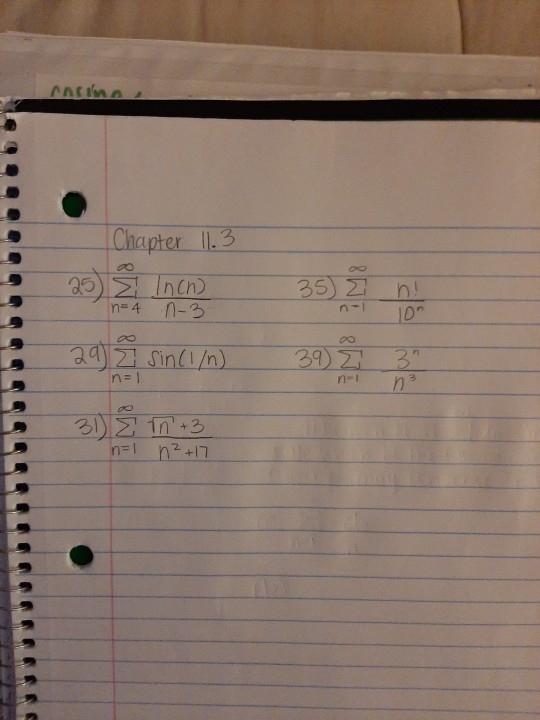 cosine
Chapter 11.3
25) ∞ Σ n=4 ln(n) / n-3
35) ∞ Σ n=1 n! / 10ⁿ
29) ∞ Σ n=1 sin(1/n)
39) ∞ Σ n=1 3ⁿ / n³
31) ∞ Σ n=1 √n +3 / n² +17